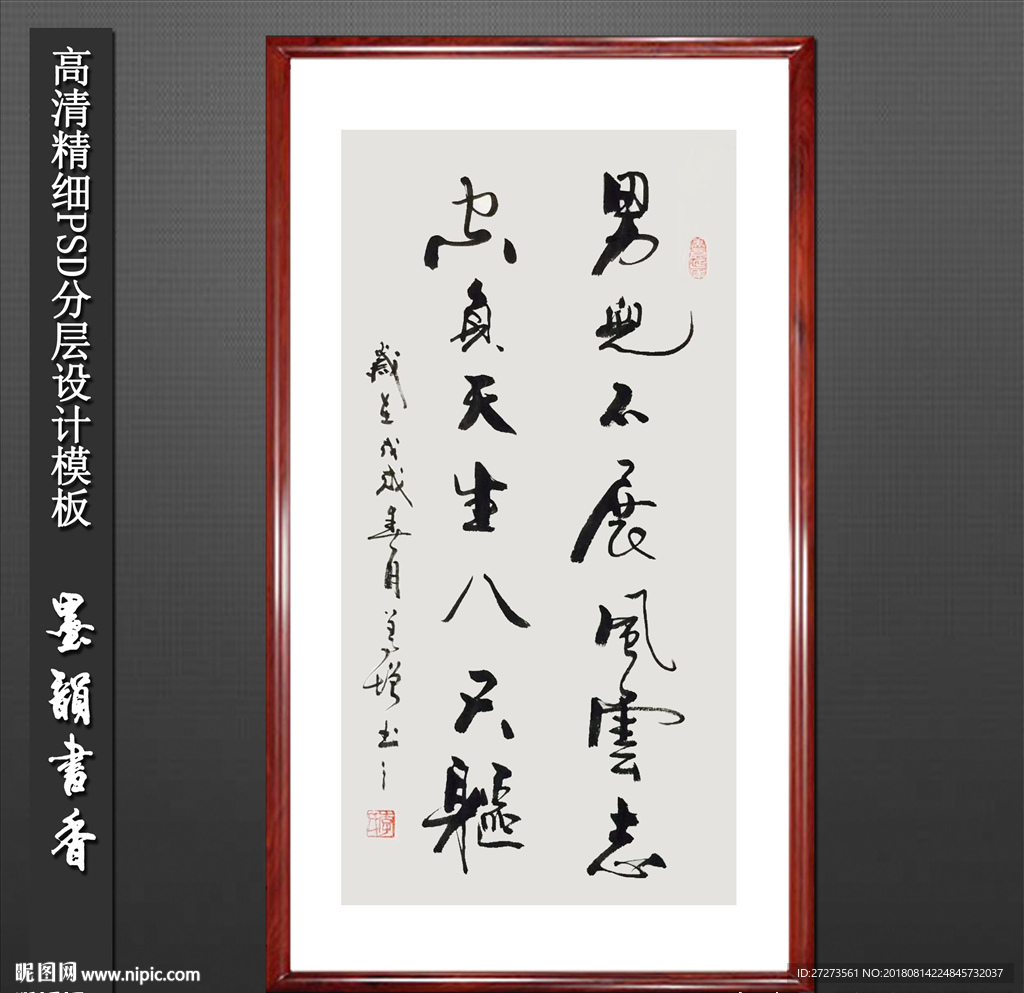 高清精细PSD分层设计模板
墨韻書香
男兒不展風雲志
空負天生八尺軀
歲在戊戌春月
書之
昵图网 www.nipic.com
ID:27273561 NO:20180814224845732037